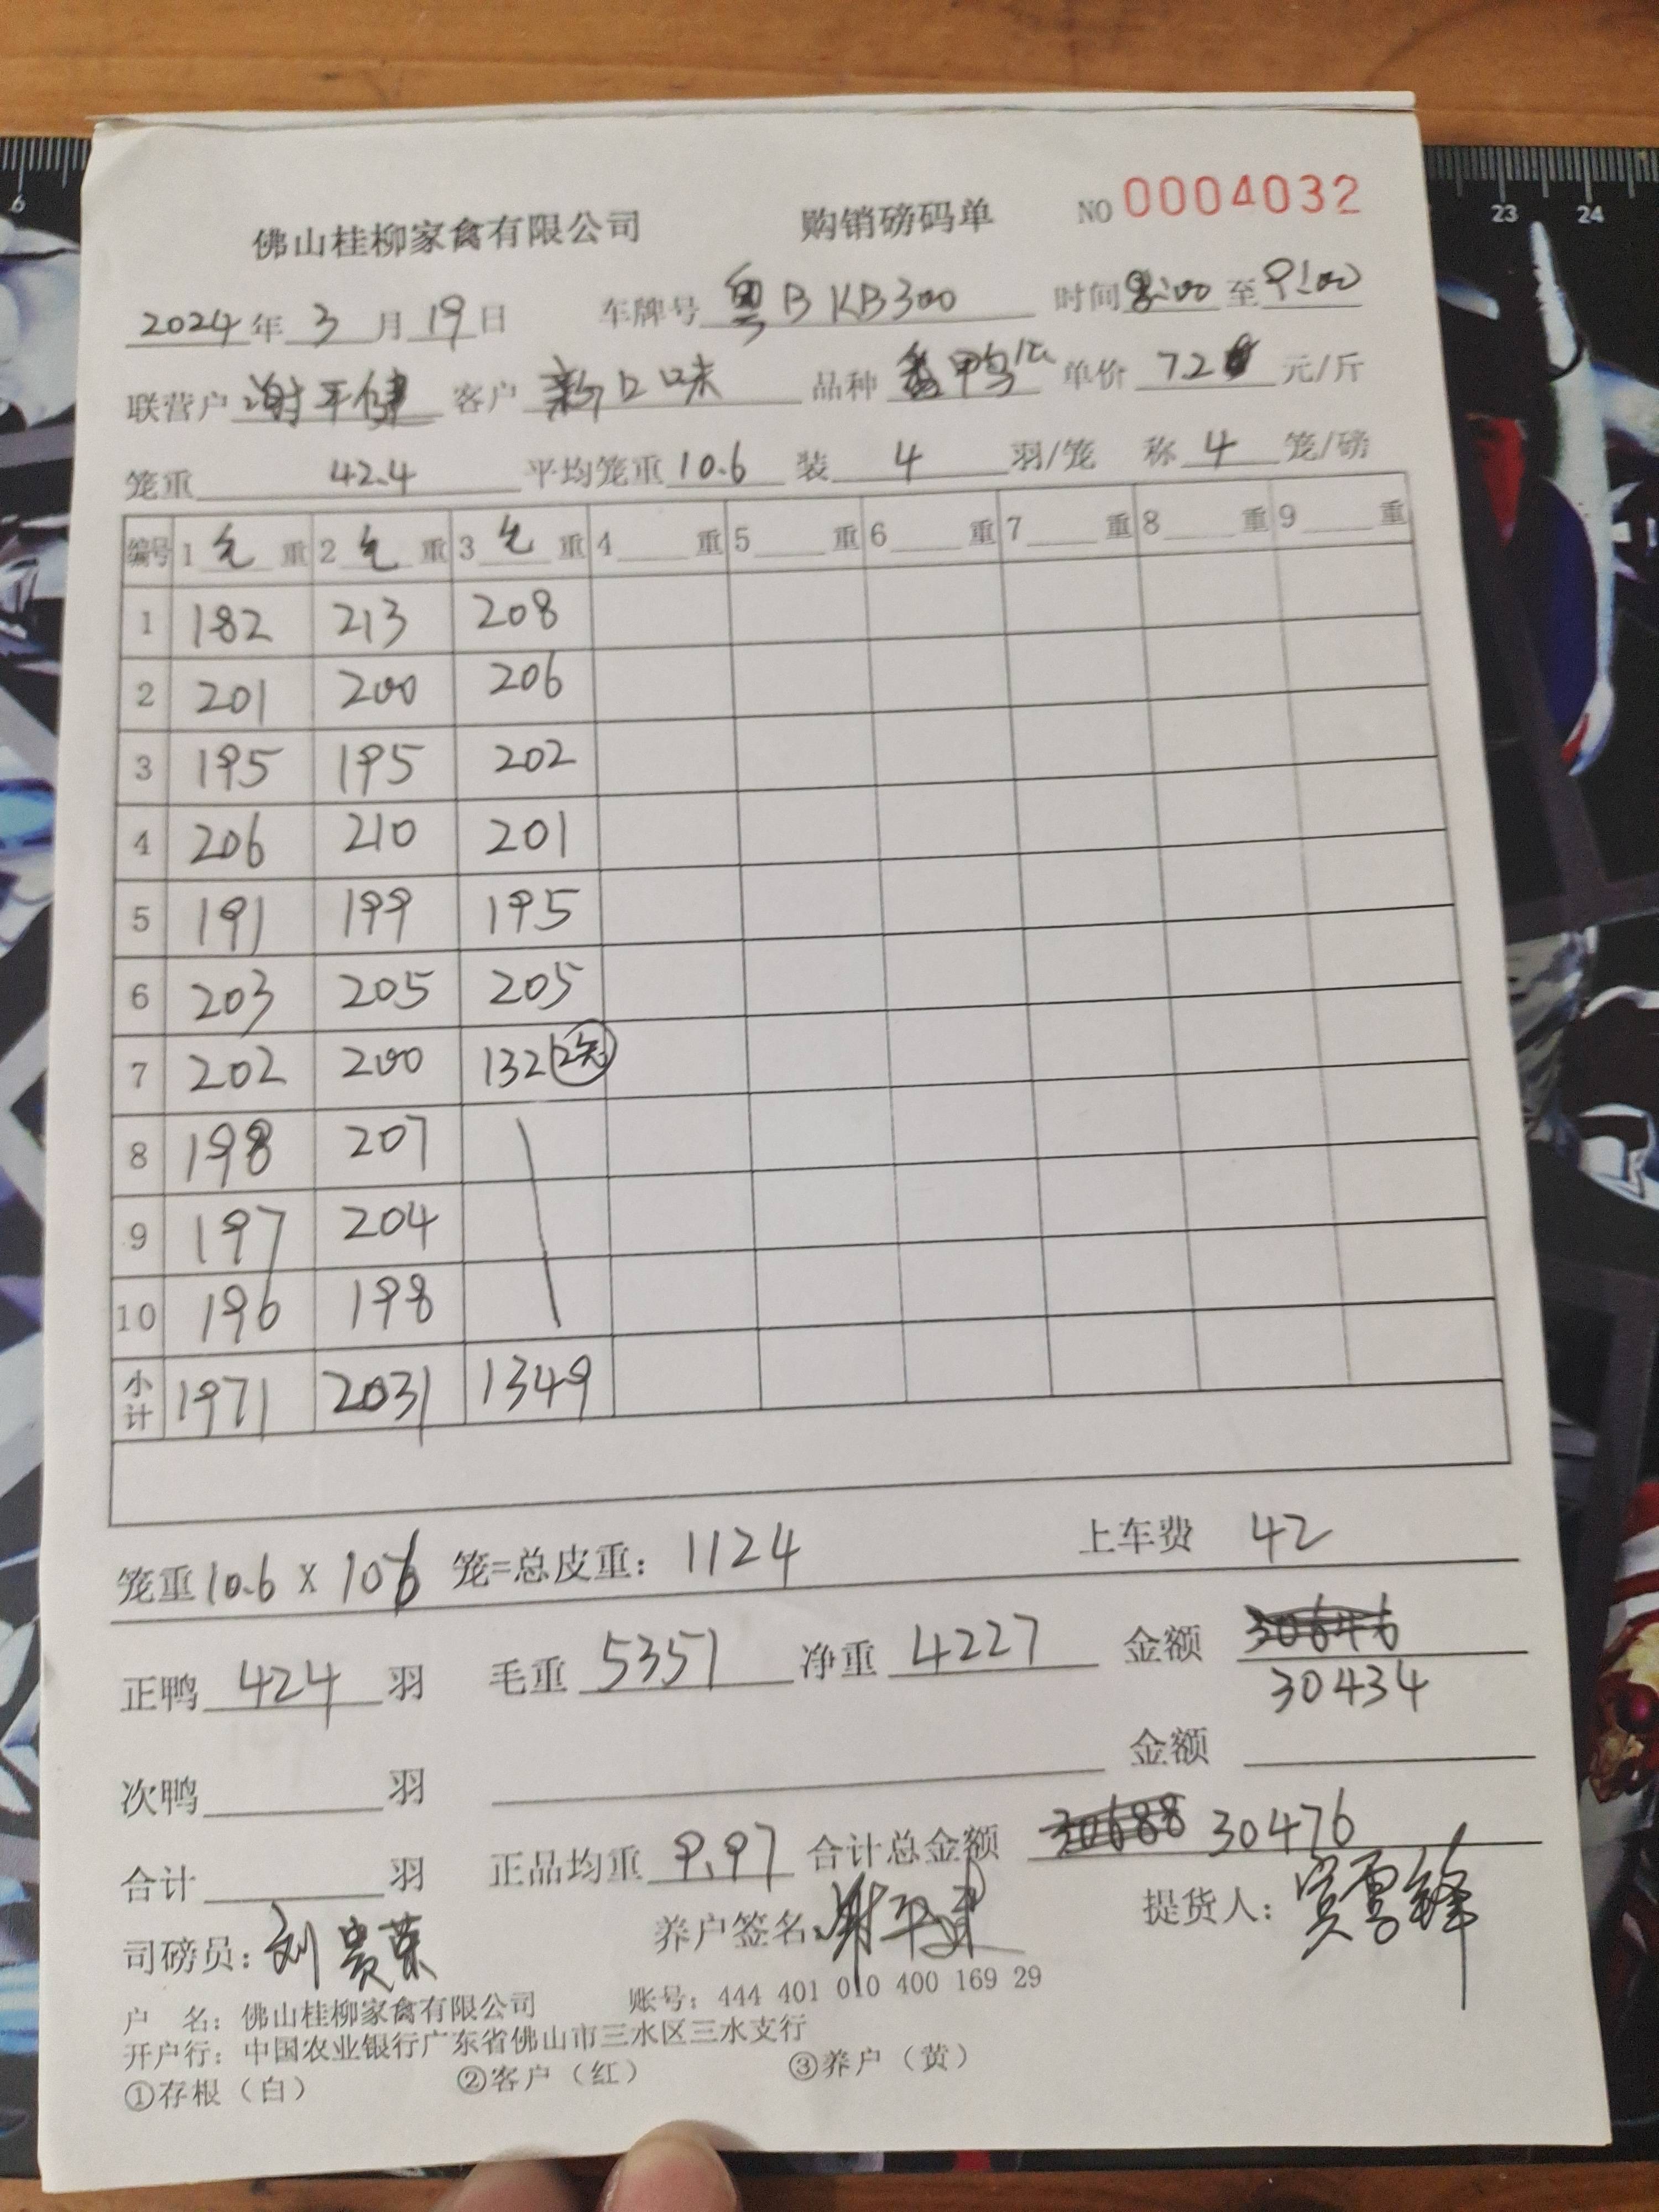 佛山桂柳家禽有限公司 购销磅码单 NO 0004032
2024年3月19日 车牌号 粤B KB300 时间 8:00 至 9:00
联营户 谢平健 客户 新口味 品种 单价 720 元/斤
笼重 42.4 平均笼重 10.6 装 4 羽/笼 称 4 笼/磅
编号 1 毛 重 2 毛 重 3 毛 重 4 重 5 重 6 重 7 重 8 重 9 重
1 182 213 208
2 201 200 206
3 195 195 202
4 206 210 201
5 191 199 195
6 203 205 205
7 202 200 132
8 198 207
9 197 204
10 196 198
小计 1971 2031 1349
笼重 10.6 X 106 笼=总皮重: 1124 上车费 42
正鸭 424 羽 毛重 5351 净重 4227 金额 30646
30434
次鸭 羽 金额
合计 羽 正品均重 9.97 合计总金额 30688 30476
司磅员: 刘贵荣 养户签名: 谢平健 提货人:
户 名: 佛山桂柳家禽有限公司 账号: 444 401 010 400 169 29
开户行: 中国农业银行广东省佛山市三水区三水支行
①存根（白） ②客户（红） ③养户（黄）
6 23 24